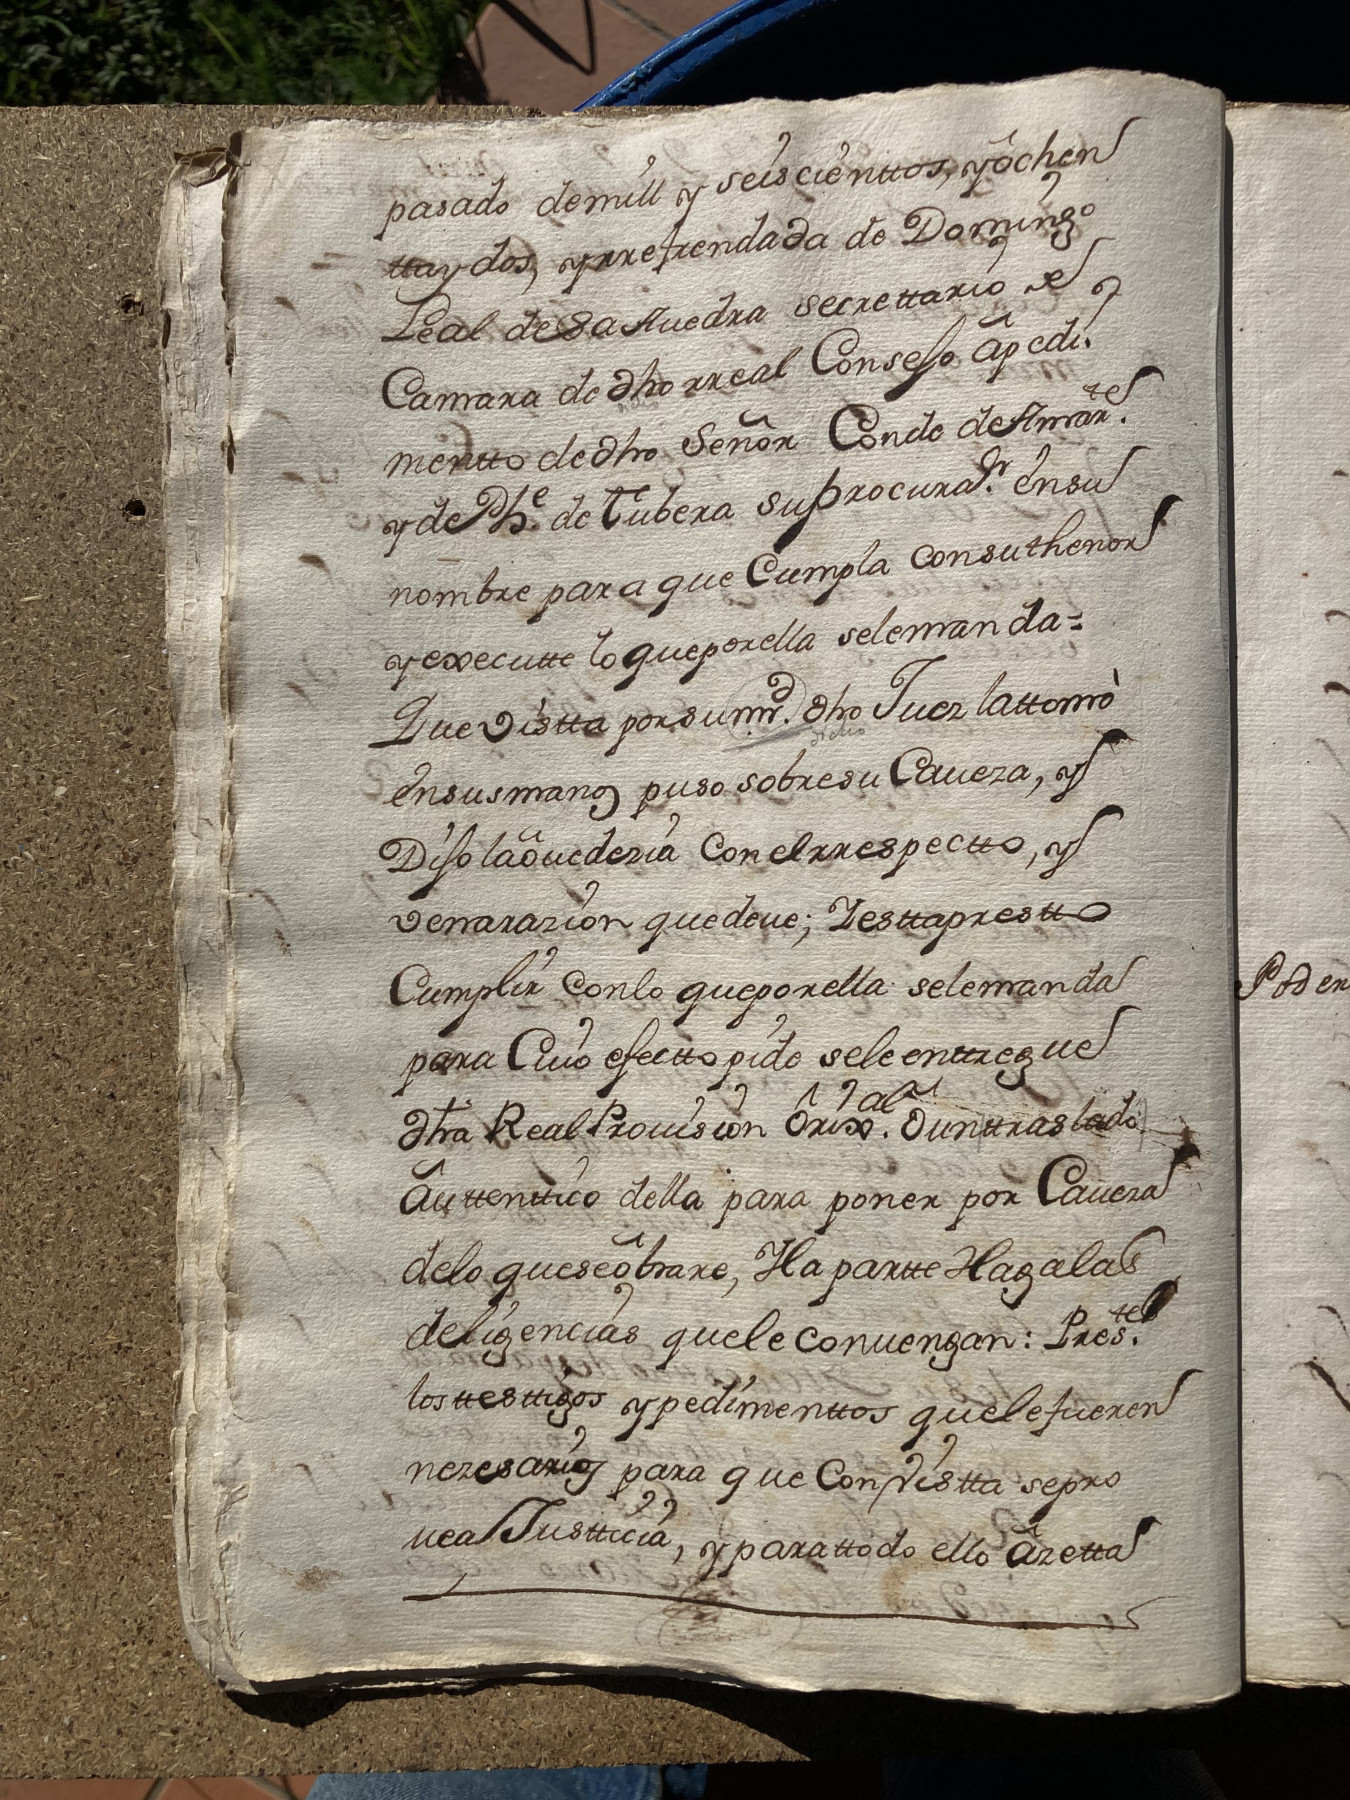 pasado demill y seiscienttos, yôchen
ttaydos, yrrefrendada de Domingo
Leal desaAuedra secrettario de
Camara de dho rreal Consejo âpedi.
mentto de dho Señor Conde de Amar.tes
y de Phe. de Tubera suprocurador. ensu
nombre para que Cumpla consuthenor
y executte lo queporella selemanda=
Que vistta porsumrd. dho Juez lattomò
ensusmanos puso sobresu Caueza, y
Dijo laôuedezia conelrrespectto, y
venarazion quedeue; Yesttaprestto
Cumplir conlo queporella selemanda
para Cuio efectto pide seleenttregue
dha Real Prouision Ôrixal. Ountraslado
âuttenttico della para poner por Caueza
delo queseôbrare, Yla partte Hagalas
deligencias quele conuengan: Pres.te
los ttesttigos ypedimenttos quelefueren
nezesarios para que Con vistta sepro
uea Justticia, yparattodo ello âzetta
Poder